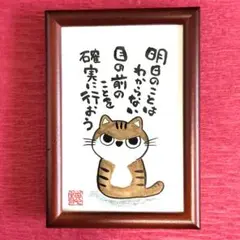 明日のことは
わからない
目の前の
ことを
確実に行おう